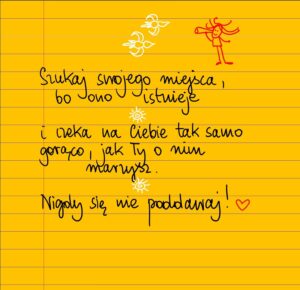 Szukaj swojego miejsca,
bo ono istnieje
i czeka na Ciebie tak samo
gorąco, jak Ty o nim
marzysz.
Nigdy się nie poddawaj!